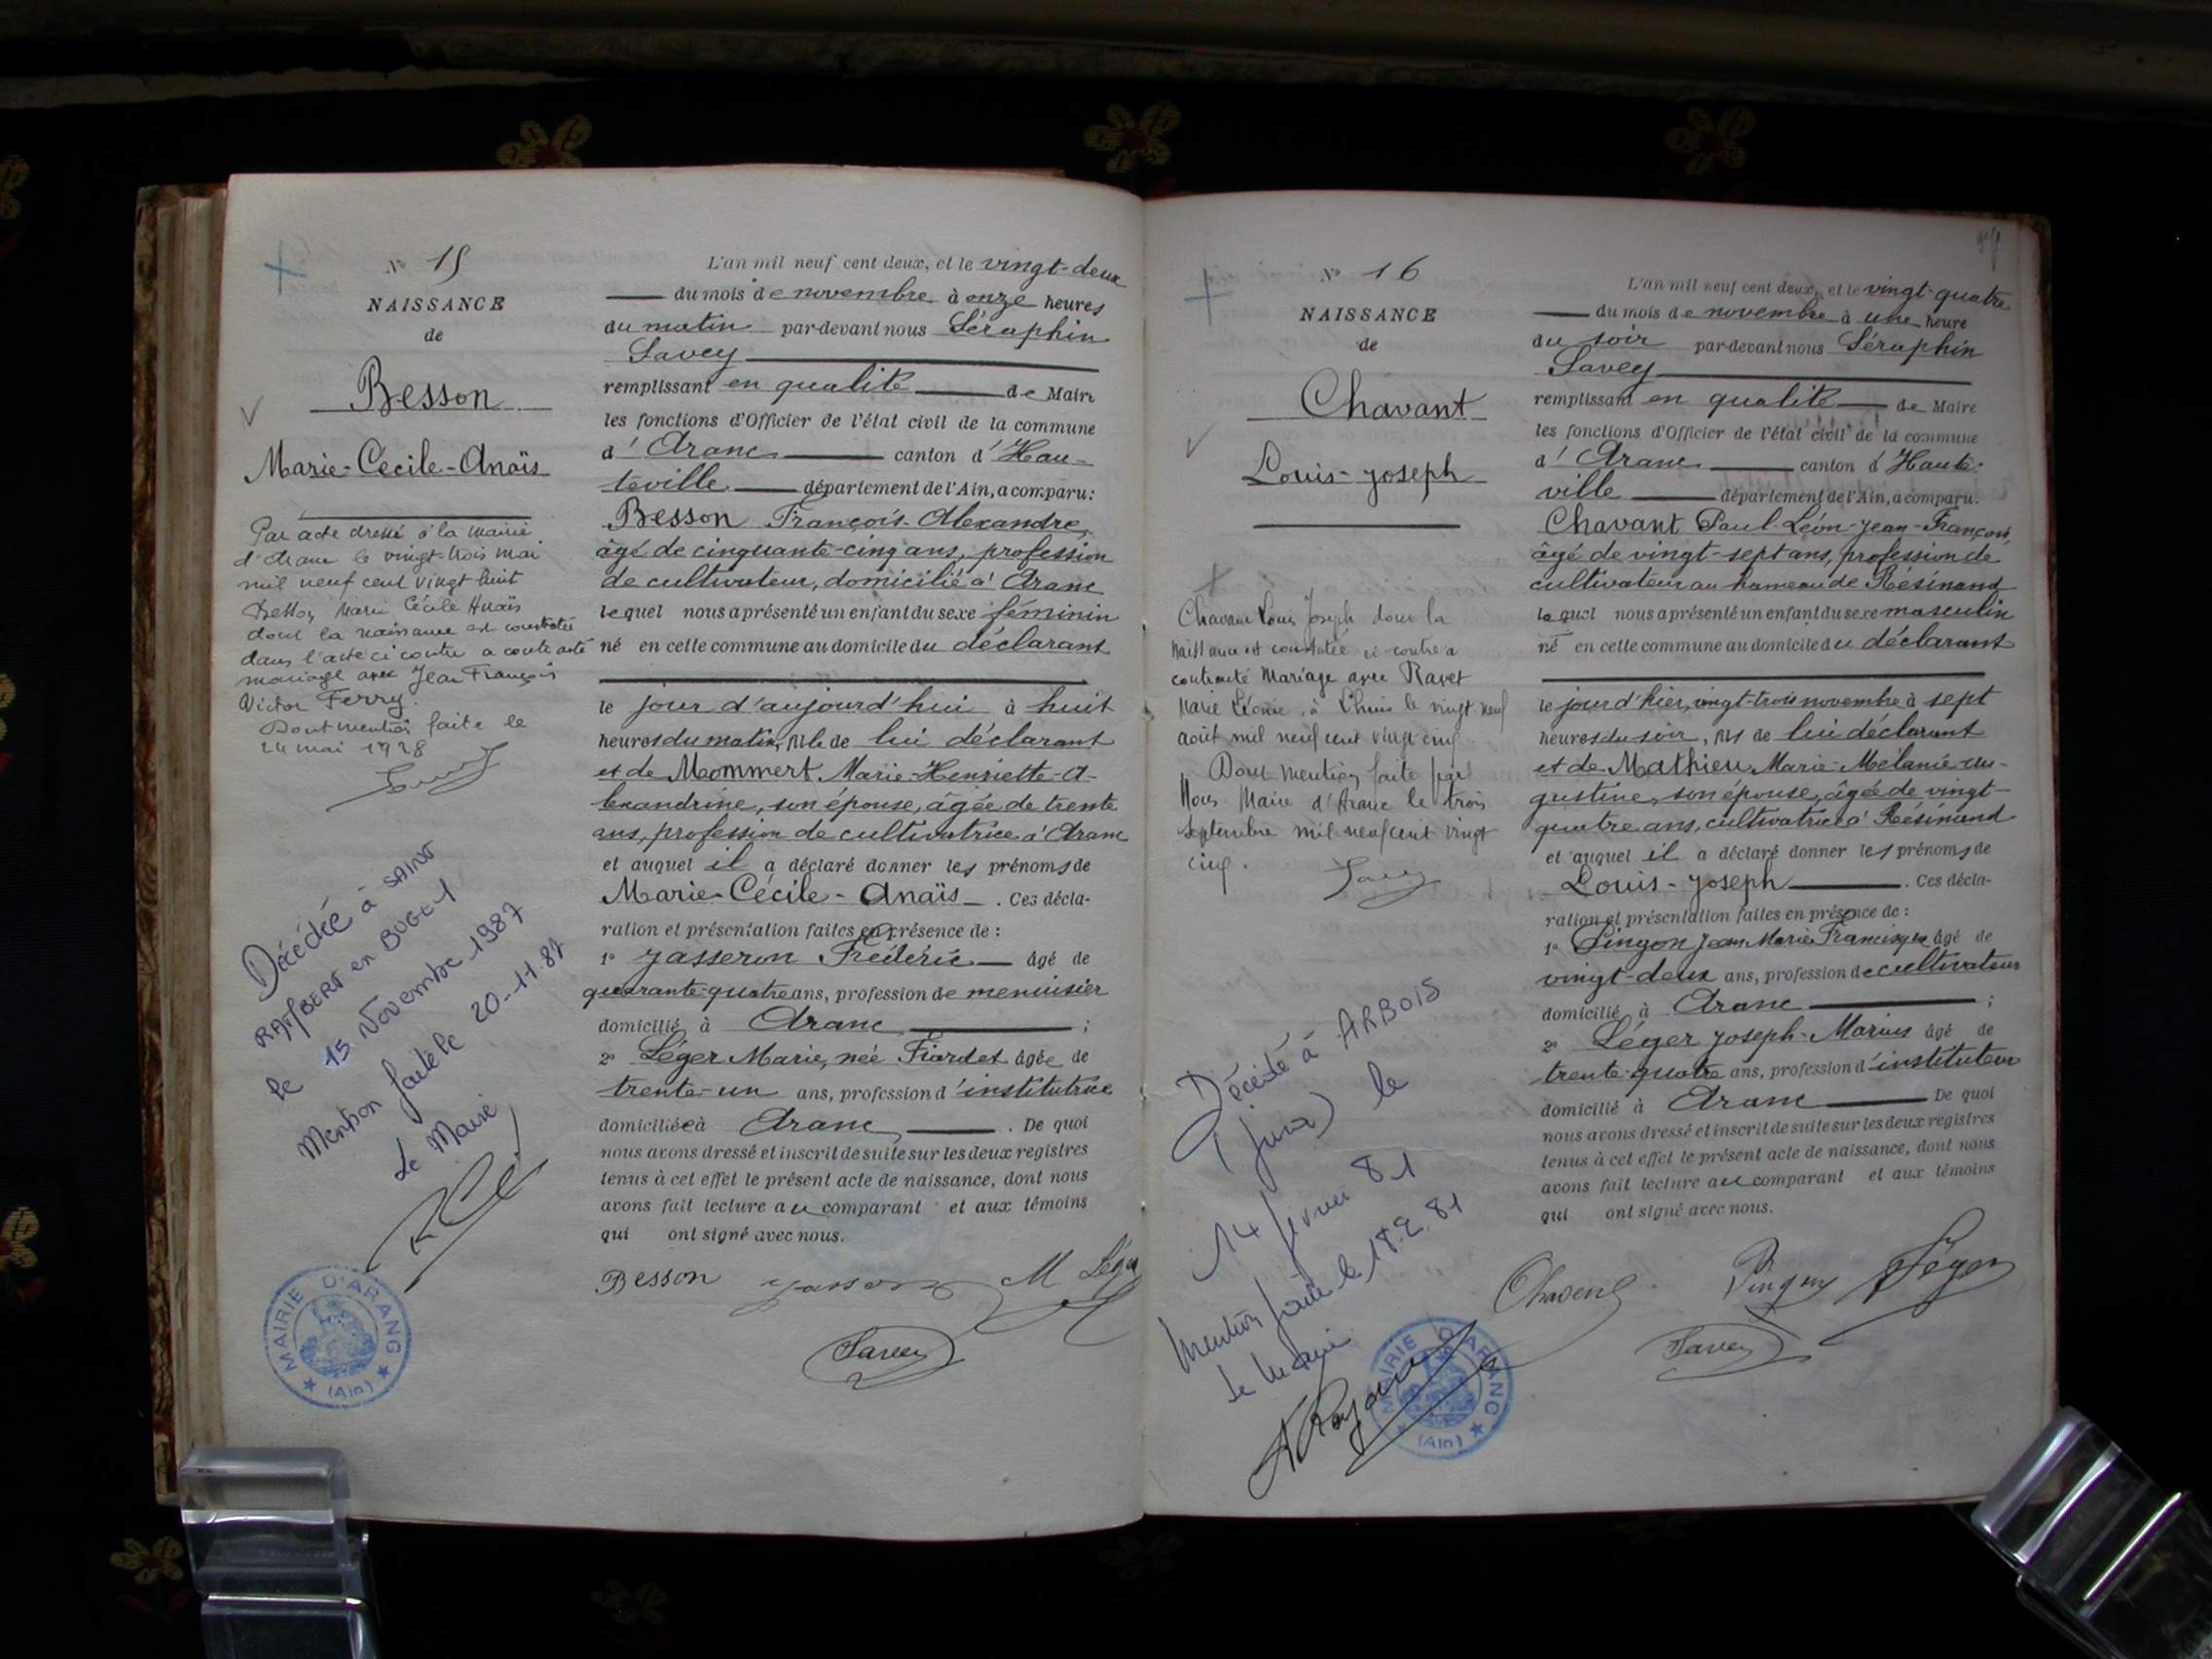 Nº 15
NAISSANCE
de
Besson
Marie-Cécile-Anaïs
Par acte dressé à la mairie
d'Aranc le vingt-trois mai
mil neuf cent vingt huit
Besson Marie Cécile Anaïs
dont la naissance est constatée
dans l'acte ci contre a contracté
mariage avec Jean François
Victor Ferry.
Dont mention faite le
24 mai 1928
Décédée à SAINT
RAMBERT en BUGEY
le 15 Novembre 1987
Mention faite le 20-11-87
Le Maire
MAIRIE D'ARANC
(Ain)
L'an mil neuf cent deux, et le vingt-deux
du mois de novembre à onze heures
du matin par-devant nous Séraphin
Savey
remplissant en qualité de Maire
les fonctions d'Officier de l'état civil de la commune
d'Aranc canton d'Hau-
teville département de l'Ain, a comparu:
Besson François-Alexandre,
âgé de cinquante-cinq ans, profession
de cultivateur, domicilié à Aranc
lequel nous a présenté un enfant du sexe féminin
né en cette commune au domicile du déclarant
le jour d'aujourd'hui à huit
heures du matin, fille de lui déclarant
et de Mommert Marie-Henriette-A-
lexandrine, son épouse, âgée de trente
ans, profession de cultivatrice à Aranc
et auquel il a déclaré donner les prénoms de
Marie-Cécile-Anaïs . Ces décla-
ration et présentation faites en présence de :
1º Jasseron Frédéric âgé de
quarante-quatre ans, profession de menuisier
domicilié à Aranc ;
2º Léger Marie, née Fiardet âgée de
trente-un ans, profession d'institutrice
domiciliée à Aranc . De quoi
nous avons dressé et inscrit de suite sur les deux registres
tenus à cet effet le présent acte de naissance, dont nous
avons fait lecture au comparant et aux témoins
qui ont signé avec nous.
Besson Jasseron M Léger
Savey
Nº 16
NAISSANCE
de
Chavant
Louis-Joseph
Chavant Louis Joseph dont la
naissance est constatée ci-contre a
contracté Mariage avec Ravet
Marie Léonie, à Lhuis le vingt neuf
août mil neuf cent vingt cinq
Dont mention faite par
Nous Maire d'Aranc le trois
septembre mil neuf cent vingt
cinq.
Savey
Décédé à ARBOIS
(Jura) le
14 février 81
Mention faite le 18.2.81
Le Maire
MAIRIE D'ARANC
(Ain)
L'an mil neuf cent deux, et le vingt-quatre
du mois de novembre à une heure
du soir par-devant nous Séraphin
Savey
remplissant en qualité de Maire
les fonctions d'Officier de l'état civil de la commune
d'Aranc canton d'Haute-
ville département de l'Ain, a comparu:
Chavant Paul-Léon-Jean-François,
âgé de vingt-sept ans, profession de
cultivateur au hameau de Résinand
lequel nous a présenté un enfant du sexe masculin
né en cette commune au domicile du déclarant
le jour d'hier, vingt-trois novembre à sept
heures du soir, fils de lui déclarant
et de Mathieu Marie-Mélanie-Au-
gustine, son épouse, âgée de vingt-
quatre ans, cultivatrice à Résinand
et auquel il a déclaré donner les prénoms de
Louis-Joseph . Ces décla-
ration et présentation faites en présence de :
1º Pingon Jean-Marie Francisque âgé de
vingt-deux ans, profession de cultivateur
domicilié à Aranc ;
2º Léger Joseph-Marius âgé de
trente-quatre ans, profession d'instituteur
domicilié à Aranc De quoi
nous avons dressé et inscrit de suite sur les deux registres
tenus à cet effet le présent acte de naissance, dont nous
avons fait lecture au comparant et aux témoins
qui ont signé avec nous.
Chavant Pingon Léger
Savey